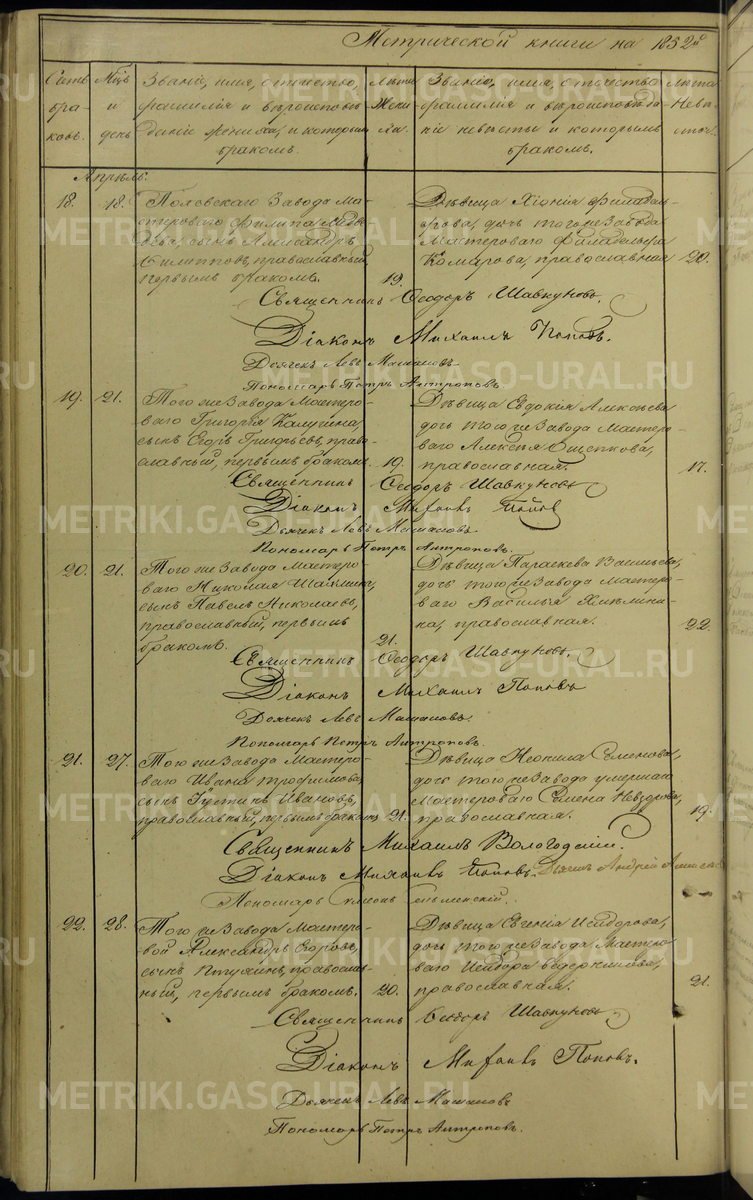 Метрической книги на 1852й
Счетъ бра- ковъ.
Мцъ и день
Званіе, имя, отчество, фамилія и вѣроисповѣ- даніе жениха, и которымъ бракомъ.
Лѣта Жени- ха.
Званіе, имя, отчество фамилія и вѣроисповѣда- ніе невѣсты и которымъ бракомъ.
Лѣта Невѣ- сты.
Апрѣль.
18. 18.
Полевскаго Завода Ма-
стероваго Филипа Медве-
дева, сынъ Александръ
Филипповъ, православный,
первымъ бракомъ.
19.
Дѣвица Хіонія Филадель-
фова, дочь того же Завода
Мастероваго Филадельфа
Комарова, православная
20.
Священникъ Ѳеодоръ Шавкуновъ.
Діаконъ Михаилъ Поповъ.
Дьячекъ Левъ
Пономарь Петръ Антроповъ
19. 21.
Того же Завода Мастеро-
ваго Григорія Калугина,
сынъ Егоръ Григорьевъ, право-
славный, первымъ бракомъ.
19.
Дѣвица Евдокія Алексѣева
дочь того же Завода Мастеро-
ваго Алексѣя Ощепкова,
православная.
17.
Священникъ Ѳеодоръ Шавкуновъ
Діаконъ Михаилъ Поповъ
Дьячекъ Левъ
Пономарь Петръ Антроповъ.
20. 21.
Того же Завода Мастеро-
ваго Николая
сынъ Павелъ Николаевъ,
православный, первымъ
бракомъ.
21.
Дѣвица Параскева Васильева,
дочь того же Завода Мастеро-
ваго Василья
на, православная.
22.
Священникъ Ѳеодоръ Шавкуновъ.
Діаконъ Михаилъ Поповъ
Дьячекъ Левъ
Пономарь Петръ Антроповъ.
21. 27.
Того же Завода Мастеро-
ваго Ивана Трофимова,
сынъ Иванов,
православный, первымъ бракомъ
21.
Дѣвица Неонила Семенова,
дочь того же Завода умершаго
Мастероваго Семена Невзорова,
православная.
19.
Священникъ Михаилъ Вологодскій.
Діаконъ Михаилъ Поповъ. Дьячекъ Андрей
Пономарь Симеонъ
22. 28.
Того же Завода Мастеро-
вой Александръ Егоровъ,
сынъ Птухинъ, православ-
ный, первымъ бракомъ.
20.
Дѣвица Евгенія Исидорова,
дочь того же Завода Мастеро-
ваго Исидора
православная.
21.
Священникъ Ѳеодоръ Шавкуновъ
Діаконъ Михаилъ Поповъ.
Дьячекъ Левъ
Пономарь Петръ Антроповъ.
METRIKI.GASO-URAL.RU